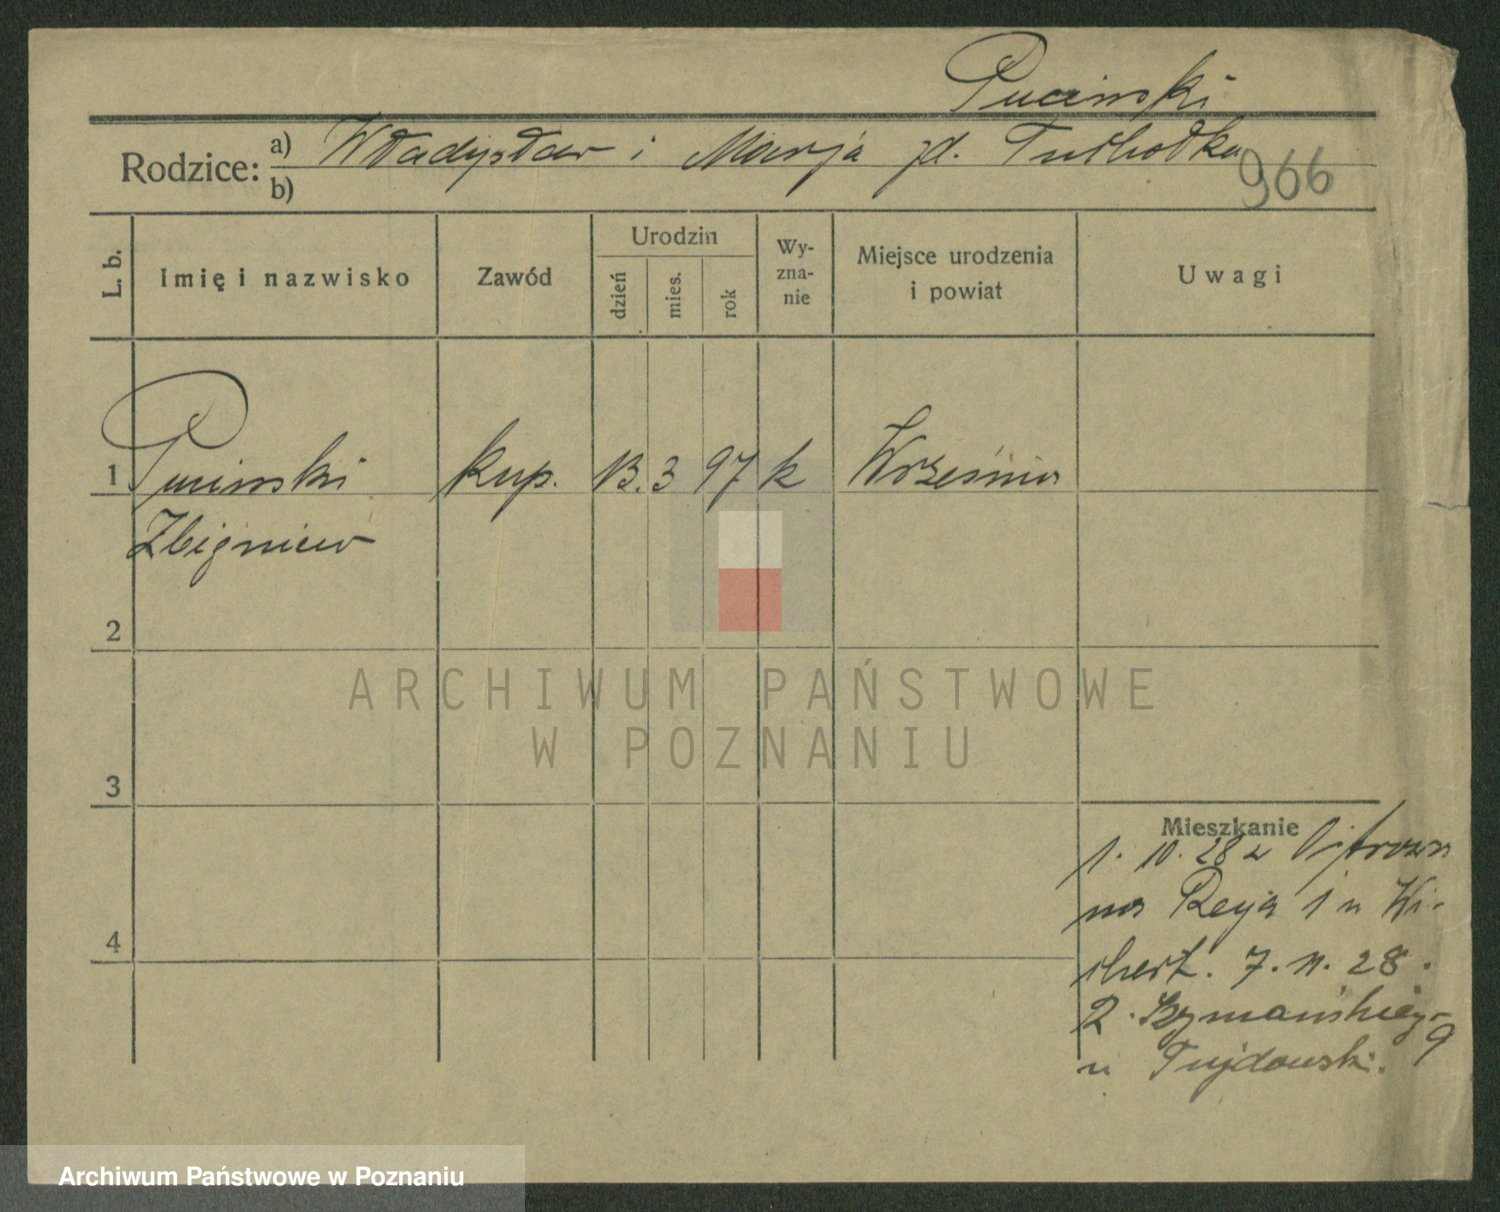 Pucinski
Rodzice: a) Władysław i Marja zd. Tuchołka
b)
966
L. b.
Imię i nazwisko
Zawód
Urodzin
dzień
mies.
rok
Wy-
zna-
nie
Miejsce urodzenia
i powiat
Uwagi
1 Pucinski kup. 13. 3 97 k Września
Zbigniew
2
ARCHIWUM PAŃSTWOWE
W POZNANIU
3
Mieszkanie
1. 10. 28 z
na Reja 1 u Wi-
chert. 7. 11. 28.
2. Szymańskieg- 9
u
4
Archiwum Państwowe w Poznaniu